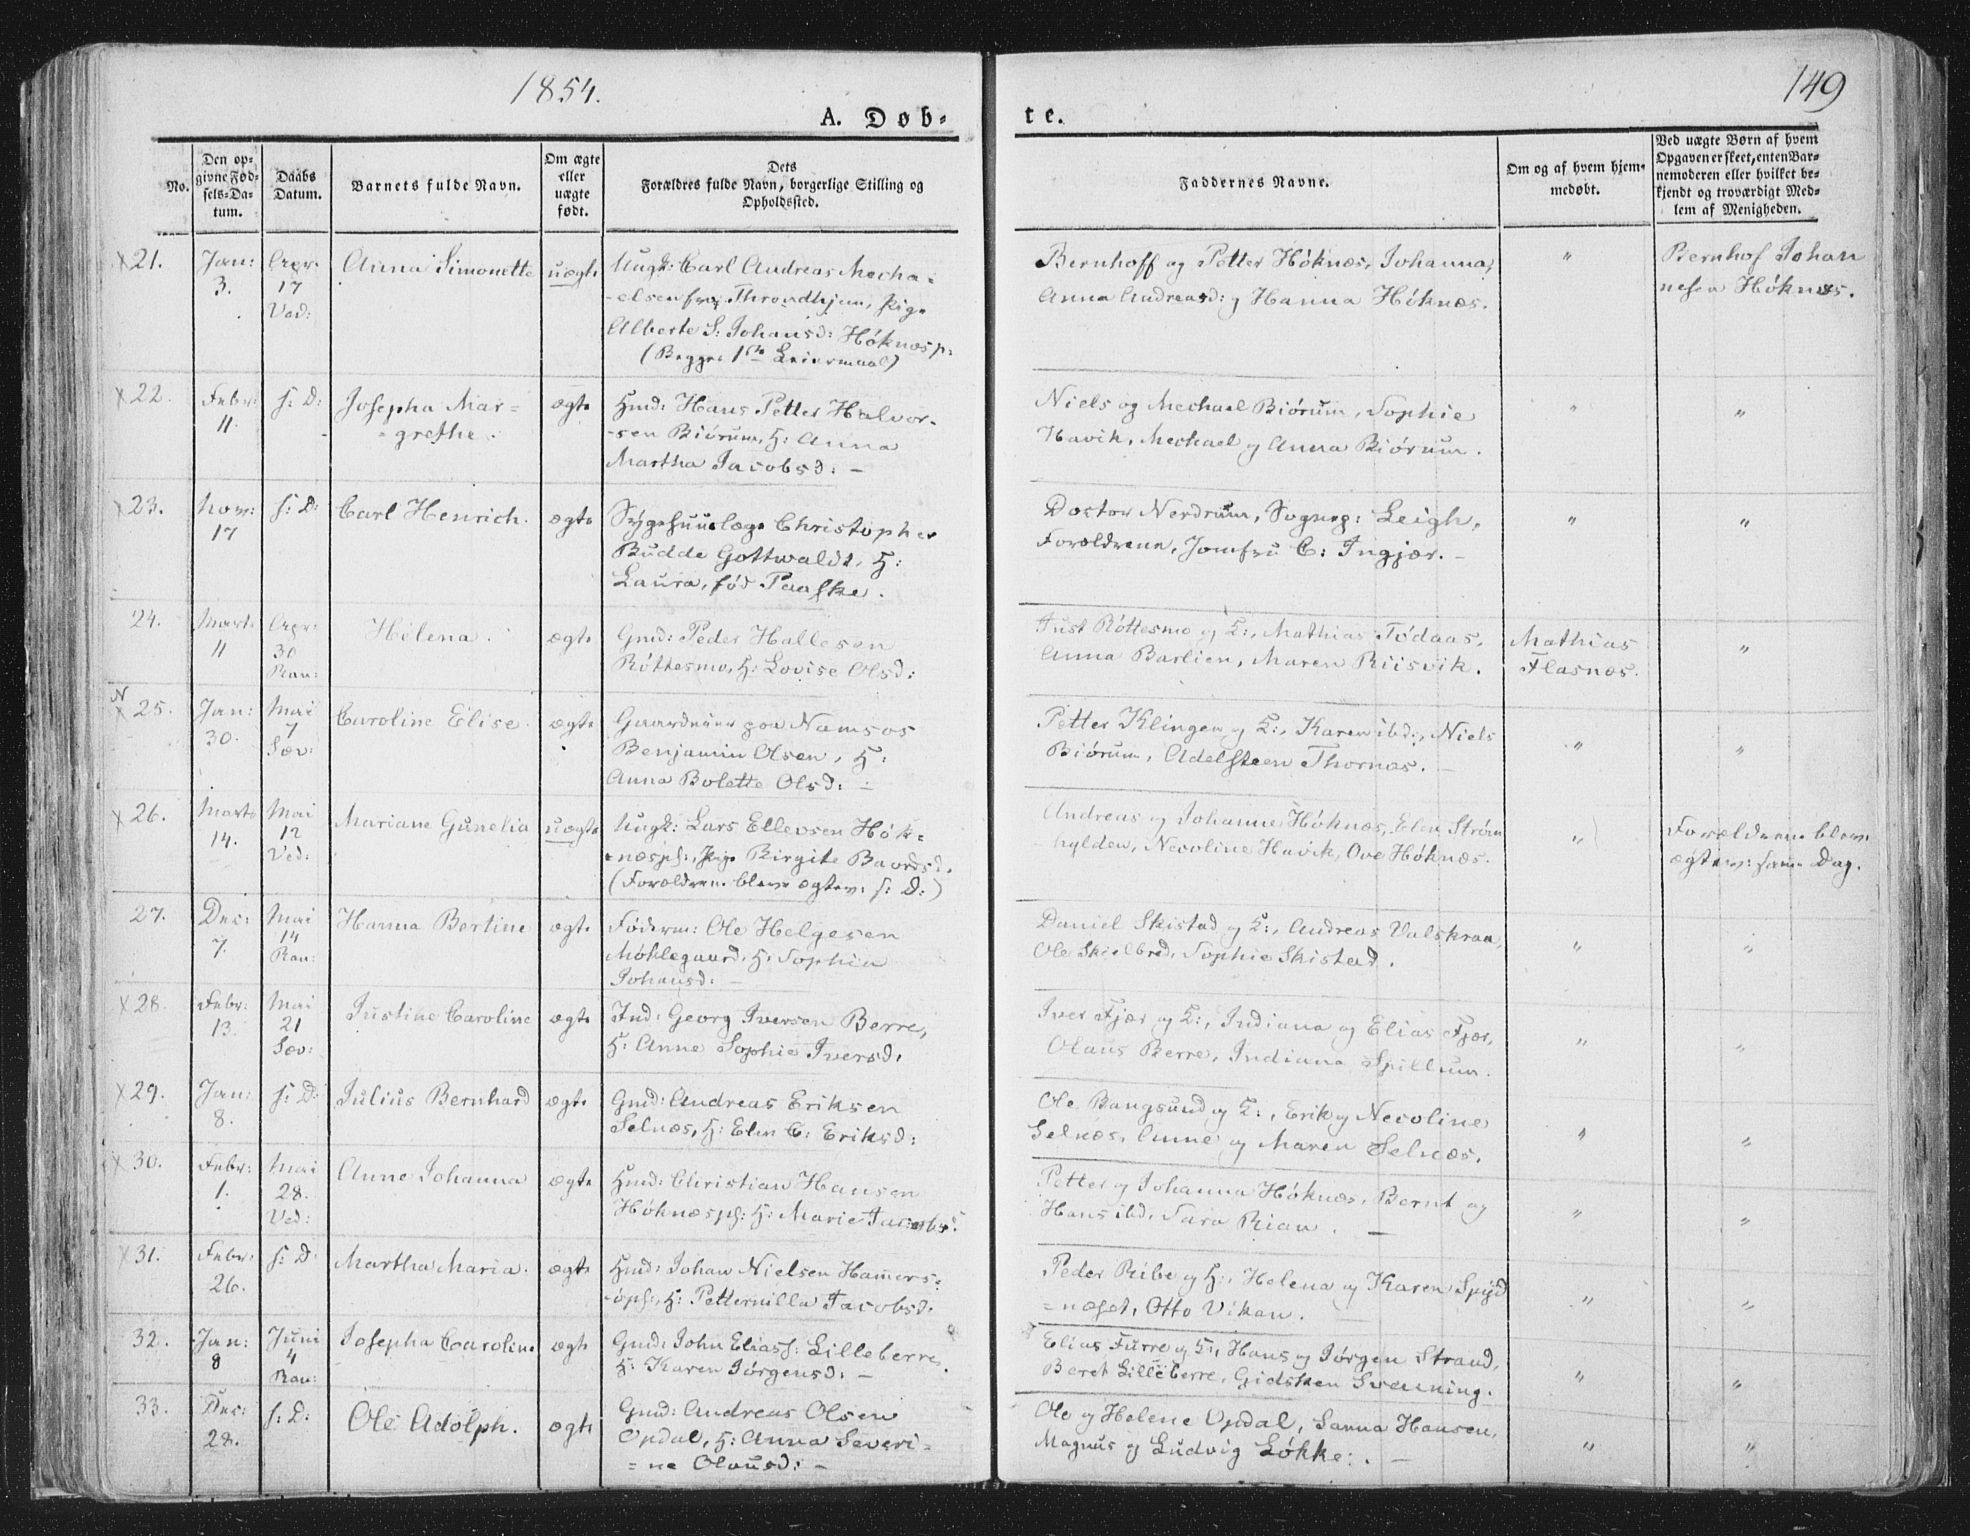 1854.
149
A. Døb-
te.
No.
Den op-
givne Fød-
sels-Da-
tum.
Daabs
Datum.
Barnets fulde Navn.
Om ægte
eller
uægte
født.
Dets
Forældres fulde Navn, borgerlige Stilling og
Opholdssted.
Faddernes Navne.
Om og af hvem hjem-
medøbt.
Ved uægte Børn af hvem
Opgaven er skeet, enten Bar-
nemoderen eller hvilket be-
kjendt og troværdigt Med-
lem af Menigheden.
x 21.
Jan:
3.
Apr:
17
Ved:
Anna Simonette
uægte
Ungk: Carl Andreas Mecha-
-elsen fra Throndhjem, Pige
Alberte S: Johansd: Høknæsp:
(Begges 1ste Leiermaal)
Bernhoff og Petter Høknæs, Johanna,
Anna Andreasd: og Hanna Høknæs.
"
Bernhof Johan
nesen Høknæs.
x 22.
Febr:
11.
s: D:
Josepha Mar=
=grethe.
ægte
Hmd: Hans Petter Halvor-
-sen Biörum, H: Anna
Martha Jacobsd: –
Niels og Mechael Biörum, Sophie
Havik, Mechael og Anna Biörum.
"
"
x 23.
Nov:
17
s: D:
Carl Henrich.
ægte
Sygehuuslæge Christopher
Budde Gottwaldt, H:
Laura, fød Paaske.
Doctor Nerdrum, Sognep: Leigh,
Forældrene, Jomfru C: Ingjær. –
"
"
24.
Marts
11
Apr:
30
Ran:
Helena.
ægte
Gmd: Peder Hallesen
Röttesmo, H: Lovise Olsd:
Just Röttesmo og K:, Mathias Tödaas,
Anna Barlien, Maren Riisvik.
Mathias
Flasnæs.
"
N
x 25.
Jan:
30.
Mai
7
Sæv:
Caroline Elise.
ægte
Gaardeier paa Namsos
Benjamin Olsen, H:
Anna Bolette Olsd: –
Petter Klingen og K:, Karen ibd:, Niels
Biörum, Adelsteen Thornæs. –
"
"
x 26.
Marts
14.
Mai
12
Ved:
Mariane Gunelia
uægte
Ungk: Lars Ellevsen Høk-
-næspl:, Pige Birgite Baardsd.
(Forældrene bleve ægtev: s: D:)
Andreas og Johanne Høknæs, Elen Strøm
hylden, Necoline Havik, Ove Høknæs.
"
Forældrene bleve
ægtev: sam: Dag.
27.
Dec:
7.
Mai
14
Ran:
Hanna Bertine
ægte
Föderm: Ole Helgesen
Möklegaard, H: Sophia
Johansd: –
Daniel Skistad og K:, Andreas Valskraa,
Ole Skielbred, Sophie Skistad.
"
"
x 28.
Febr:
13.
Mai
21
Sæv:
Justine Caroline
ægte
Ind: Georg Iversen Berre,
H: Anne Sophie Iversd:
Iver Fjær og K:, Indiana og Elias Fjær,
Olaus Berre, Indiana Spillum.
"
"
x 29.
Jan:
8.
s: D:
Julius Bernhard
ægte
Gmd: Andreas Eriksen
Selnæs, H: Elen C: Eriksd:
Ole Bangsund og K:, Erik og Necoline
Selnæs, Anne og Maren Selnæs.
"
"
x 30.
Febr:
1.
Mai
28.
Ved:
Anne Johanna
ægte
Hmd: Christian Hansen
Høknæspl: H: Marie Jacobsd:
Petter og Johanna Høknæs, Bernt og
Hans ibd, Sara Rian. –
"
"
x 31.
Febr:
26.
s: D:
Martha Maria.
ægte
Hmd: Johan Nielsen Hamers-
-öpl:, H: Petternilla Jacobsd:
Peder Ribe og H:, Helena og Karen Spyd
=næset, Otto Vikan.
"
"
32.
Jan:
8
Juni
4
Ran:
Josepha Caroline
ægte
Gmd: John Eliass: Lilleberre,
H: Karen Jörgensd: –
Elias Furre og K:, Hans og Jörgen Strand,
Beret Lilleberre, Gidsken Svenning.
"
"
33.
Dec:
28.
s: D:
Ole Adolph.
ægte
Gmd: Andreas Olsen
Opdal, H: Anna Severi=
=ne Olausd: –
Ole og Helene Opdal, Sanna Hansen,
Magnus og Ludvig Løkke. –
"
"